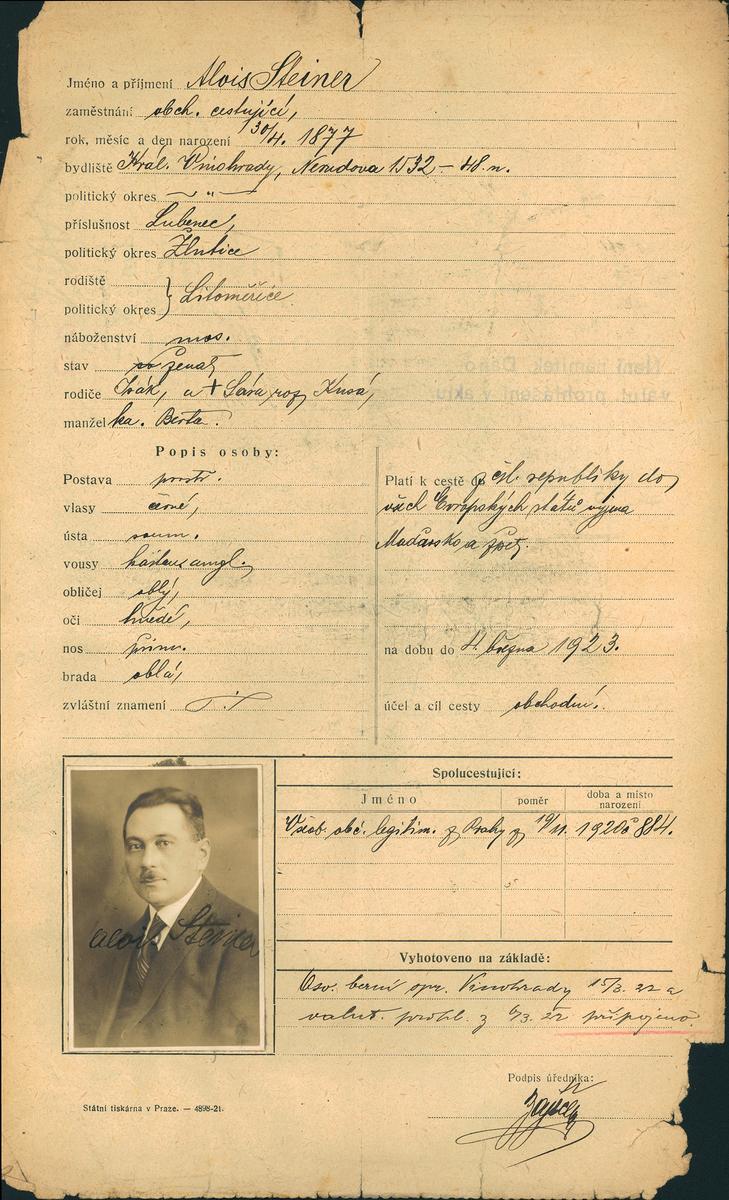 Jméno a příjmení Alois Steiner
zaměstnání obch. cestující,
rok, měsíc a den narození 30/4. 1877
bydliště Král. Vinohrady, Nerudova 1532 – 48. n.
politický okres — „ —
příslušnost Lubenec,
politický okres Žlutice
rodiště
politický okres } Litoměřice
náboženství mos.
stav ženat
rodiče Izák, a + Sára roz. Kusá,
manželka. Berta.
Popis osoby:
Postava prostř.
vlasy černé,
ústa soum.
vousy kaštan. angl.
obličej oblý,
oči hnědé,
nos přím.
brada oblá,
zvláštní znamení
Platí k cestě do z čsl. republiky do
všech Evropských států vyjma
Maďarsko a zpět.
na dobu do 4. března 1923.
účel a cíl cesty obchodní.
Alois Steiner
Spolucestující:
Jméno
poměr
doba a místo
narození
Všeob. obč. legitim. z Prahy z 19/11. 1920 č 884.
Vyhotoveno na základě:
Osv. berní spr. Vinohrady 15/3. 22 a
valut. prohl. z 6/3. 22 připojeno.
Podpis úředníka:
Státní tiskárna v Praze. — 4898-21.